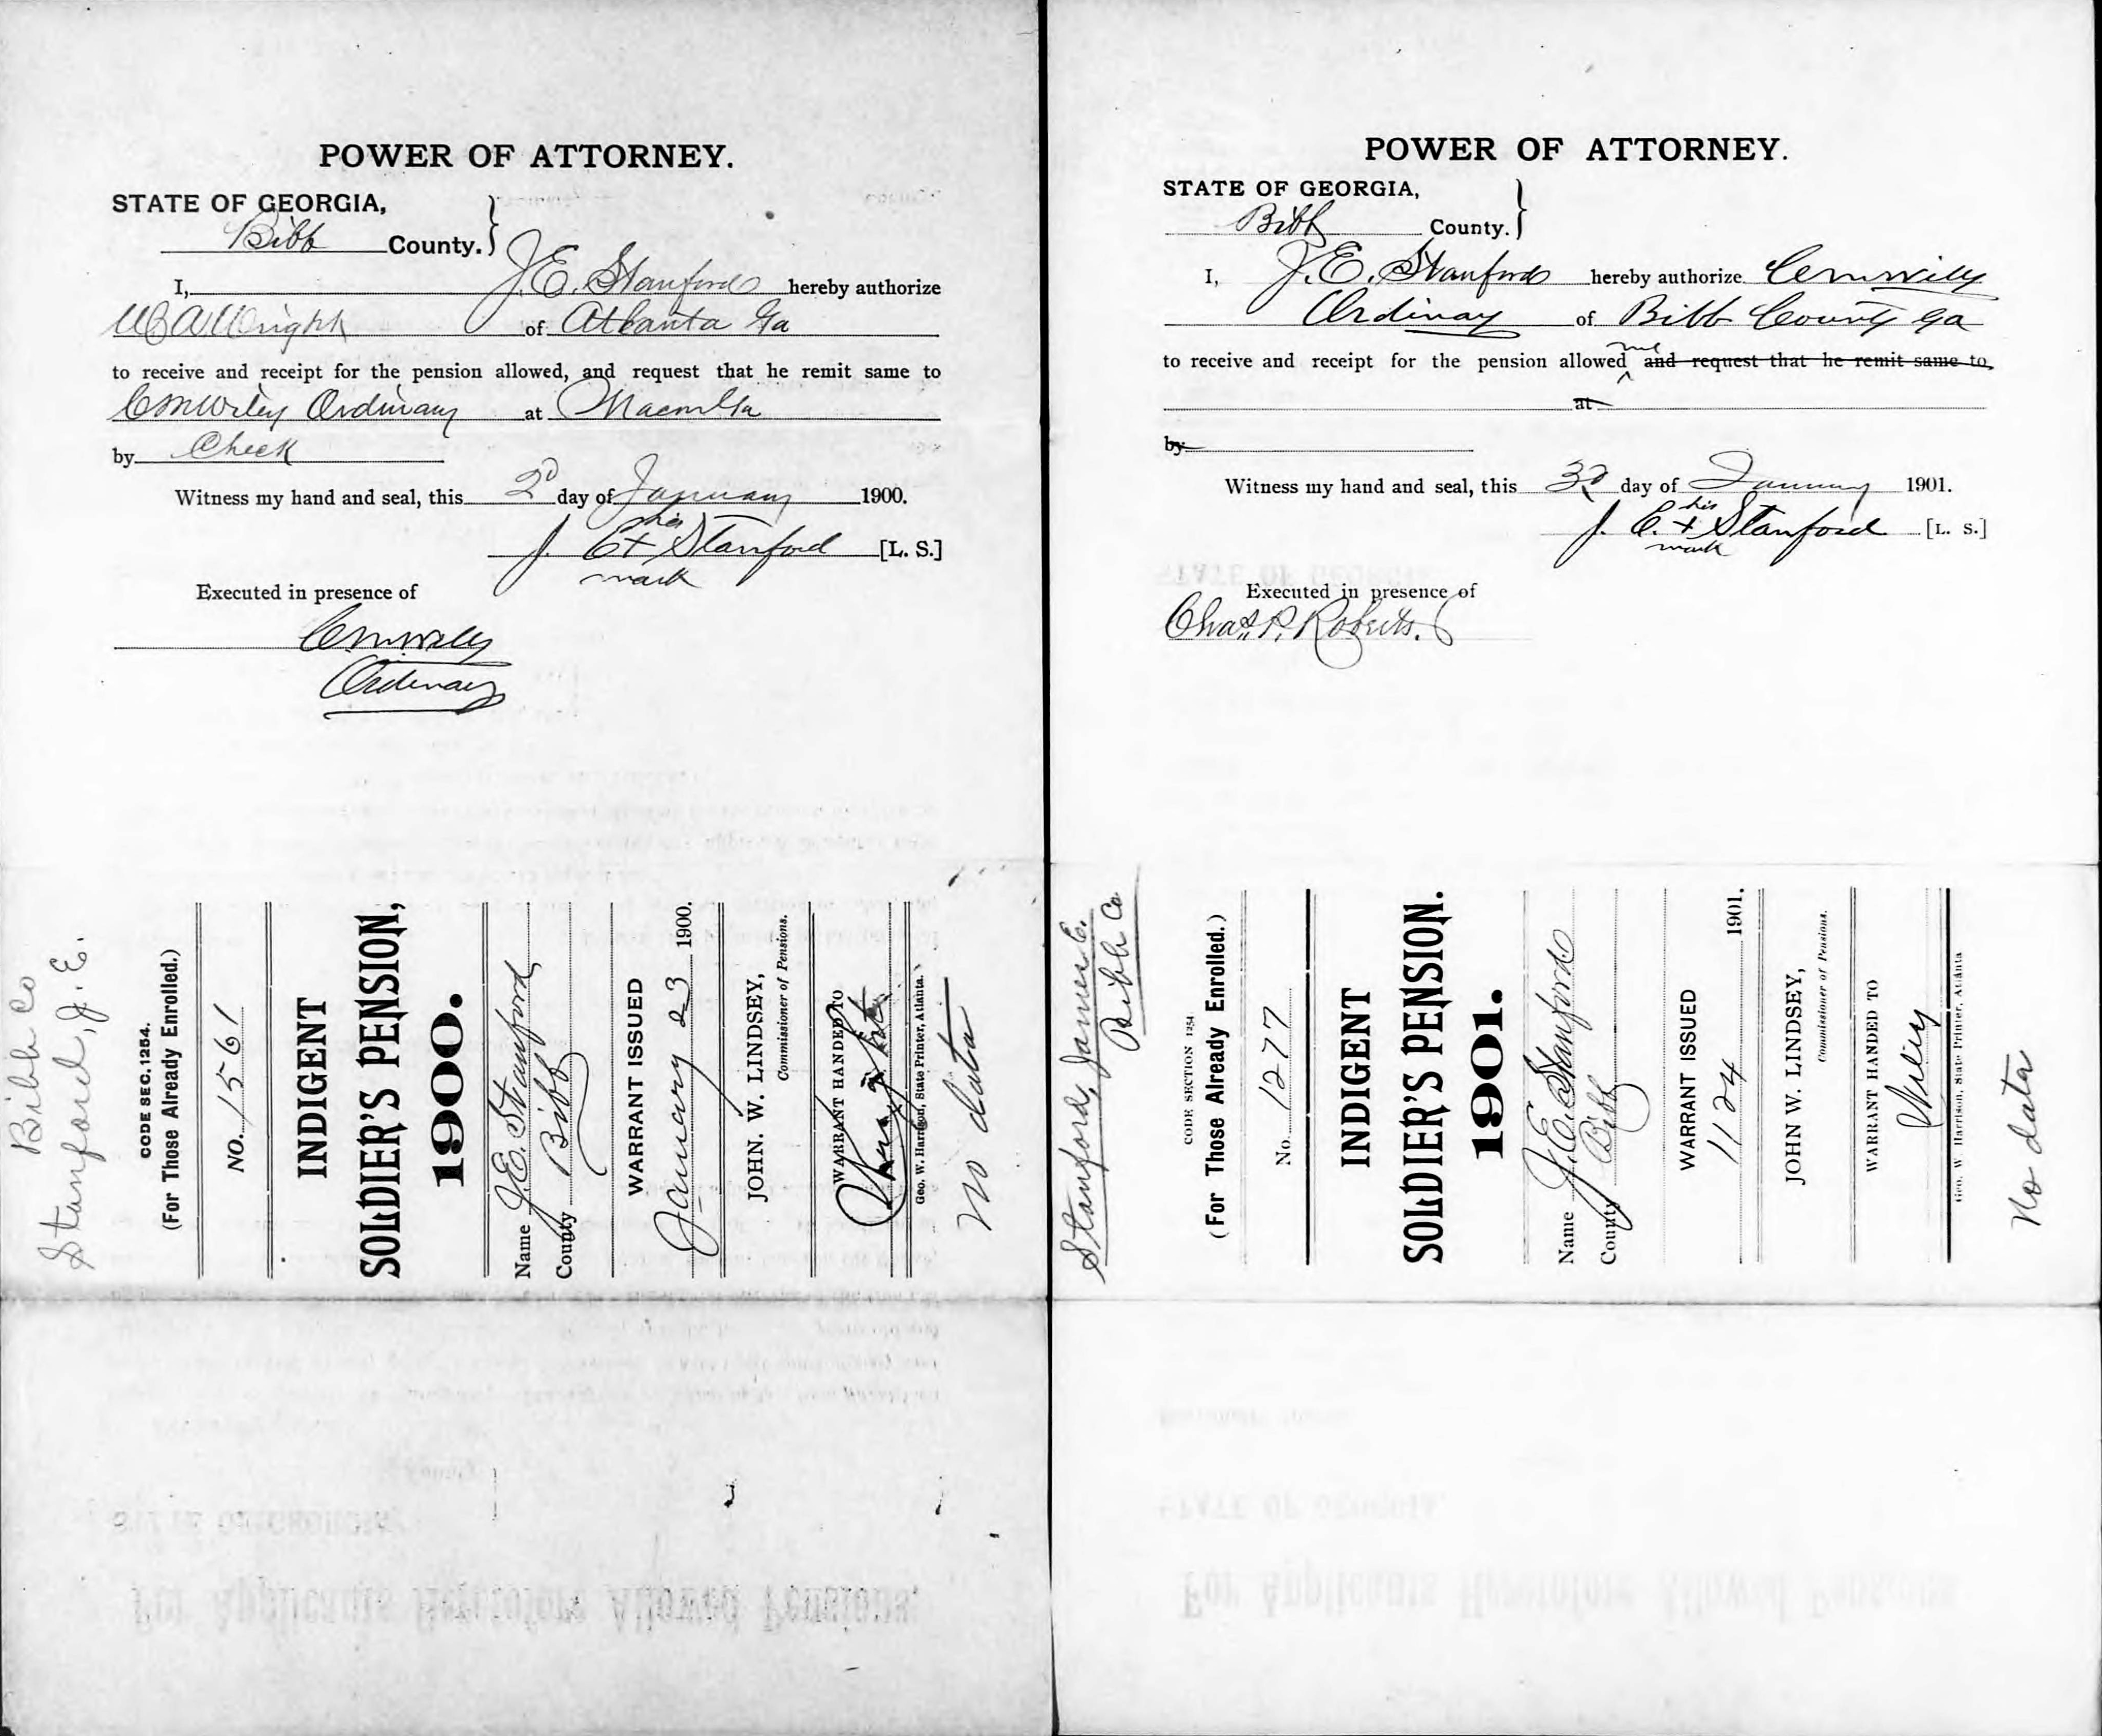 POWER OF ATTORNEY.
STATE OF GEORGIA,
Bibb County.
I, J. E. Stanford hereby authorize
W A Wright of Atlanta Ga
to receive and receipt for the pension allowed, and request that he remit same to
C M Wiley Ordinary at Macon Ga
by Check
Witness my hand and seal, this 2d day of January 1900.
his
J. E + Stanford [L. S.]
mark
Executed in presence of
C M Wiley
Ordinary
Bibb Co
Stanford, J. E.
CODE SEC. 1254.
(For Those Already Enrolled.)
NO. 1561
INDIGENT
SOLDIER'S PENSION,
1900.
Name J. E. Stanford
County Bibb
WARRANT ISSUED
January 23 1900.
JOHN. W. LINDSEY,
Commissioner of Pensions.
WARRANT HANDED TO
Geo. W. Harrison, State Printer, Atlanta.
No data
POWER OF ATTORNEY.
STATE OF GEORGIA,
Bibb County.
I, J. E. Stanford hereby authorize C M Wiley
Ordinary of Bibb County Ga
me
to receive and receipt for the pension allowed and request that he remit same to
at
by
Witness my hand and seal, this 3d day of January 1901.
his
J. E. + Stanford [L. S.]
mark
Executed in presence of
Chas. P. Roberts.
Stanford, James E.
Bibb Co
CODE SECTION 1254
(For Those Already Enrolled.)
No. 1277
INDIGENT
SOLDIER'S PENSION.
1901.
Name J. E. Stanford
County Bibb
WARRANT ISSUED
1124 1901.
JOHN W. LINDSEY,
Commissioner of Pensions.
WARRANT HANDED TO
Wiley
Geo. W. Harrison, State Printer, Atlanta
No data